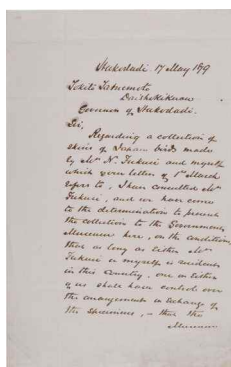 Hakodadi 17 May 1879
Tokito Tatnemoto
Daishokikwan
Governor of Hakodadi.
Sir,
Regarding a collection of
skins of Japan birds made
by Mr N. Fukusi and myself
which your letter of 1st March
refers to, I have consulted Mr
Fukusi, and we have come
to the determination to present
the collection to the Government
Museum here, on the condition
that as long as either Mr
Fukusi or myself is resident
in this country, one or either
of us shall have control over
the arrangement or exchange of
the specimens, - that the
Museum